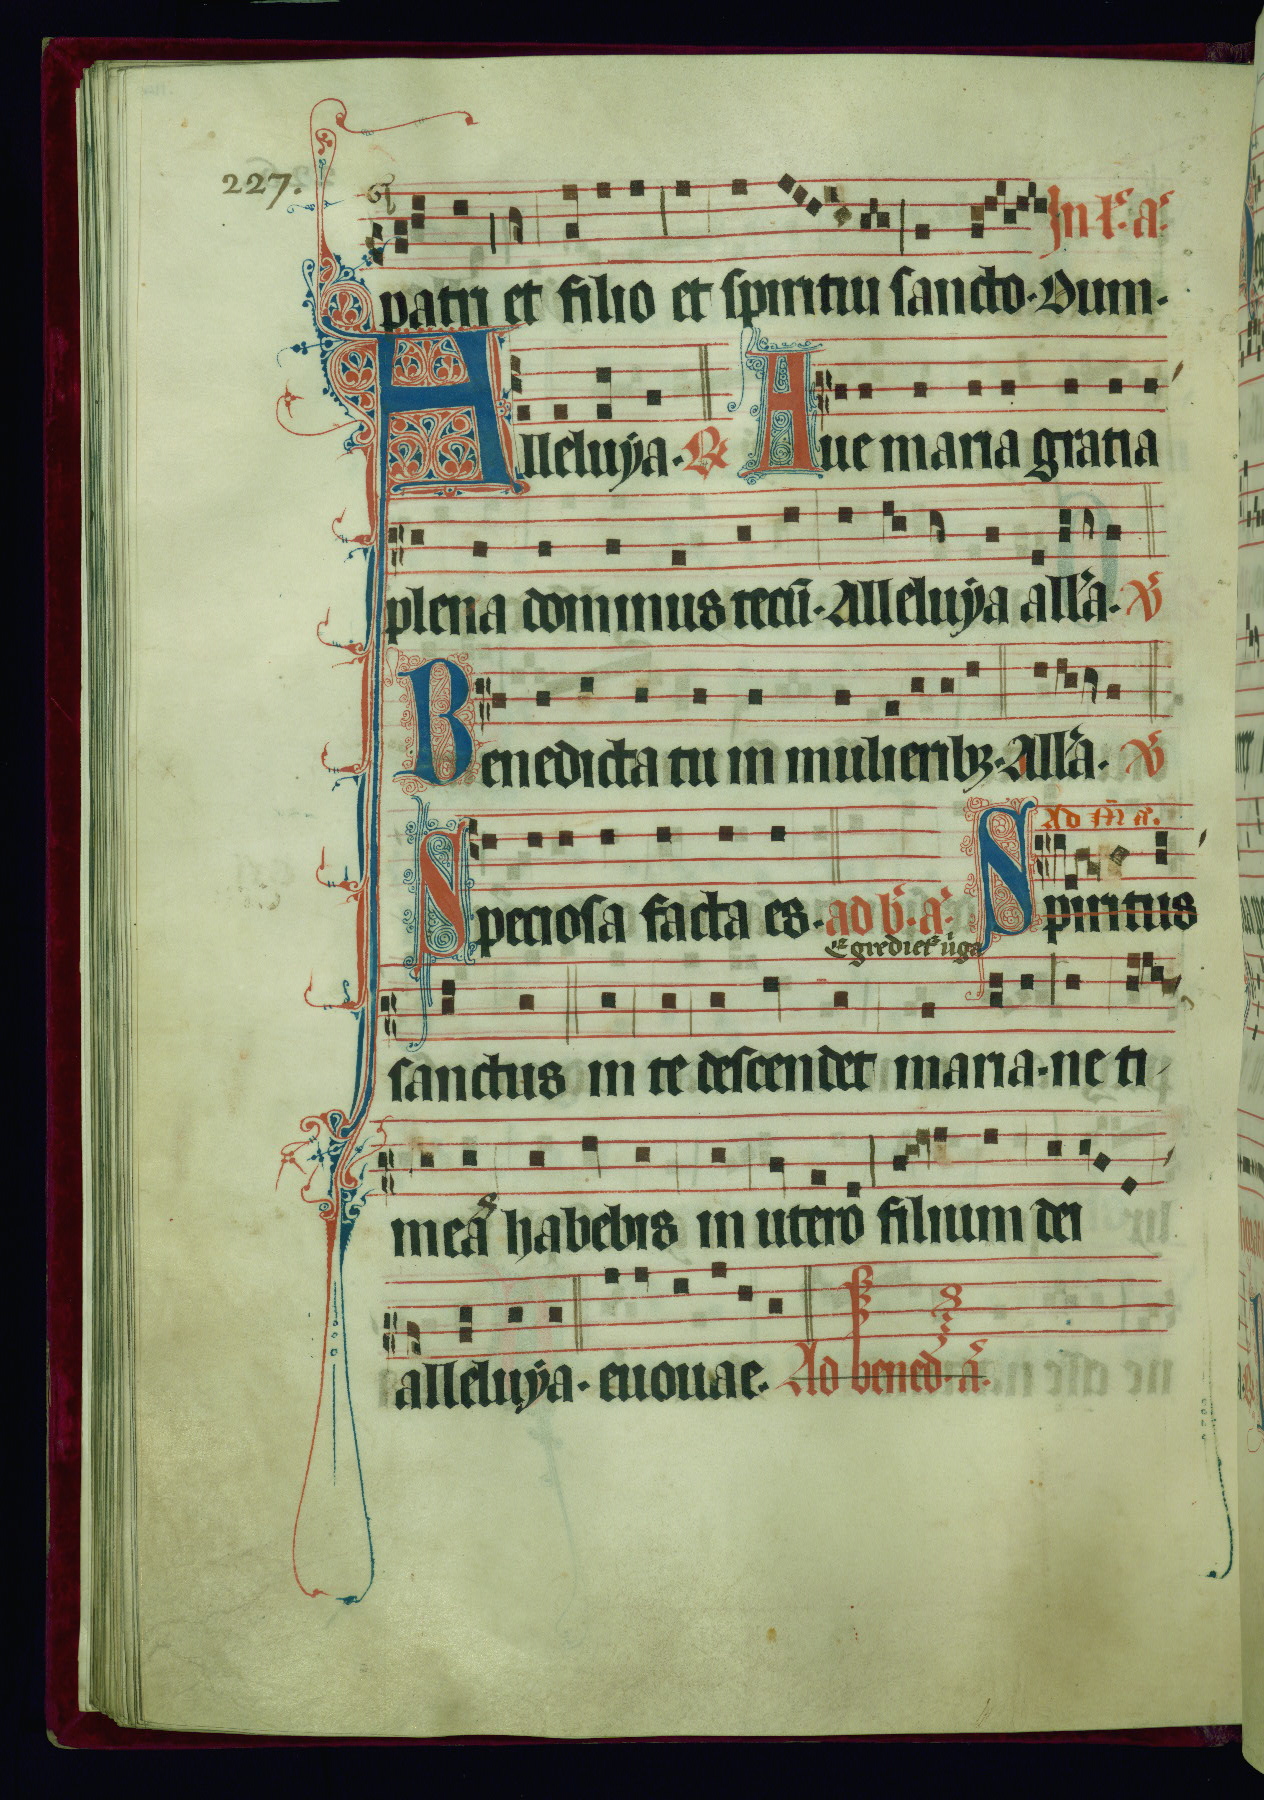 227.
In .i. a.
patri et filio et spiritui sancto. Dum.
Alleluya. R Aue maria gratia
plena dominus tecū. Alleluya all'a. V
Benedicta tu in mulieribꝫ. All'a. V
Ad M a.
Speciosa facta es. ad b. a. Spiritus
Egrediet uirga
sanctus in te descendet maria. ne ti
meas habebis in utero filium dei
alleluya. euouae. Ad bened. a.